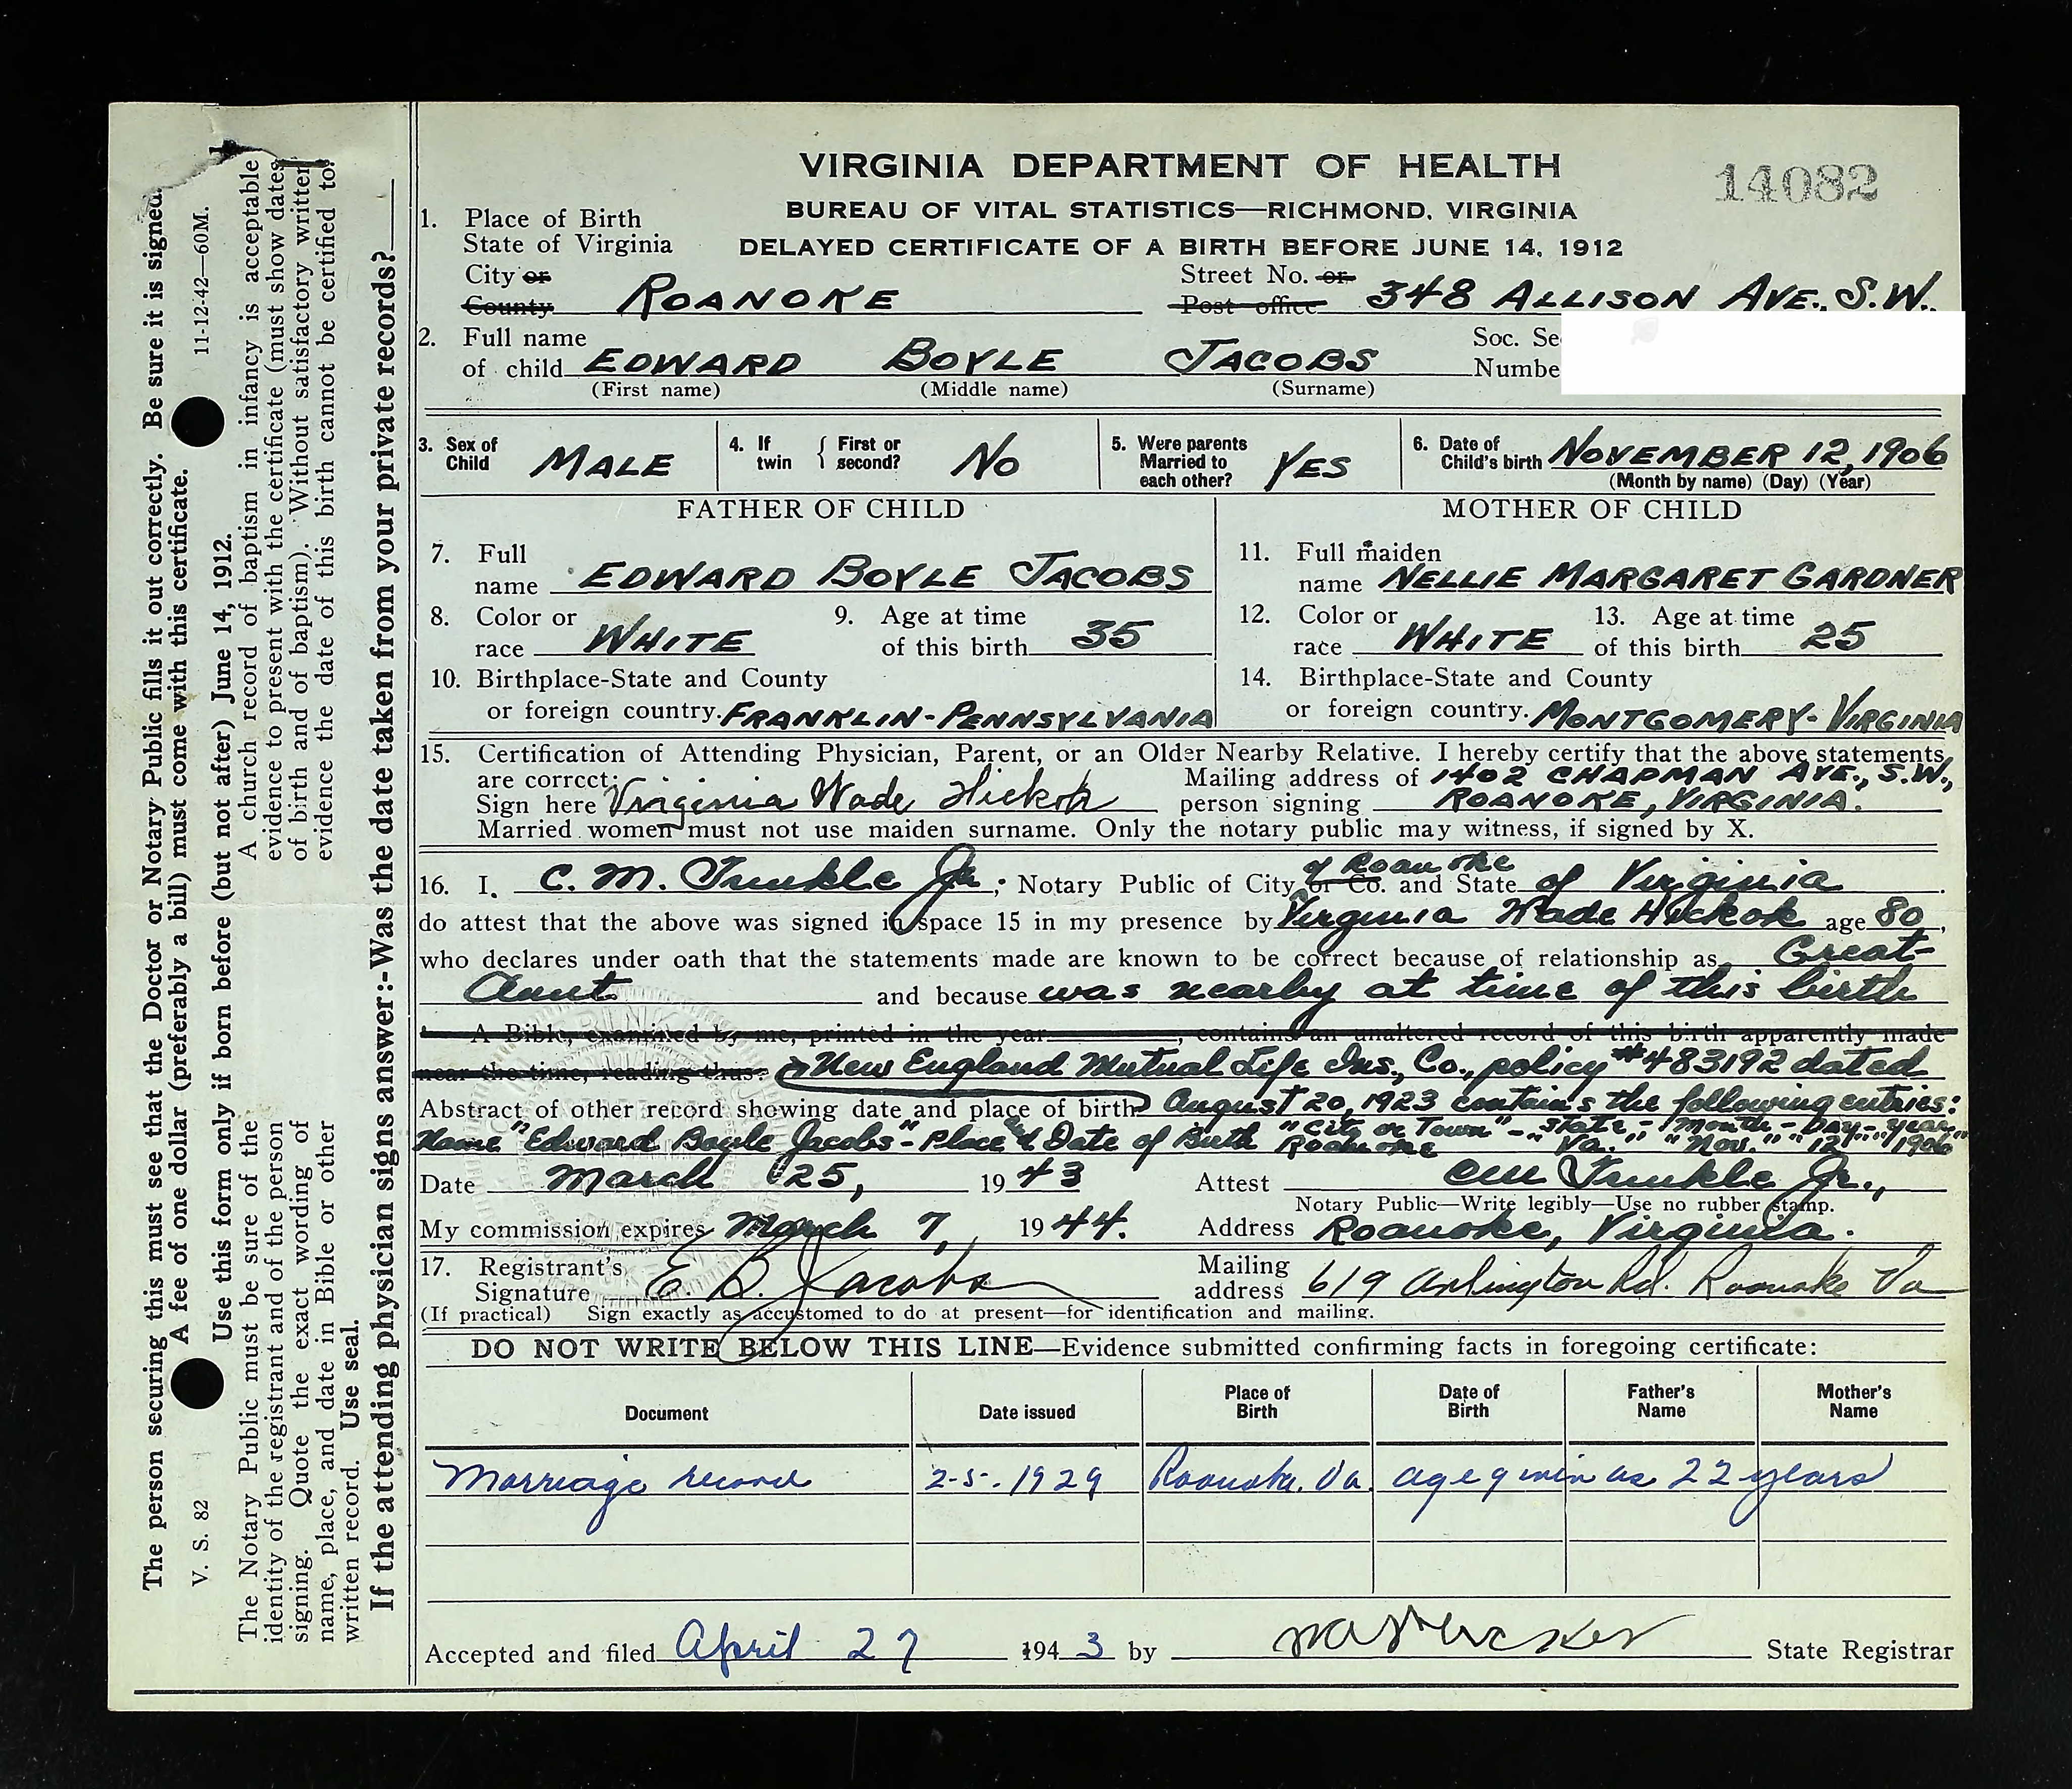 VIRGINIA DEPARTMENT OF HEALTH
14082
BUREAU OF VITAL STATISTICS—RICHMOND, VIRGINIA
DELAYED CERTIFICATE OF A BIRTH BEFORE JUNE 14, 1912
1. Place of Birth
State of Virginia
City or County ROANOKE Street No. or Post office 348 ALLISON AVE., S.W.
2. Full name of child EDWARD BOYLE JACOBS Soc. Se
Numbe
(First name) (Middle name) (Surname)
3. Sex of Child MALE 4. If twin { First or second? NO 5. Were parents Married to each other? YES 6. Date of Child's birth NOVEMBER 12, 1906
(Month by name) (Day) (Year)
FATHER OF CHILD
7. Full name EDWARD BOYLE JACOBS
8. Color or race WHITE 9. Age at time of this birth 35
10. Birthplace-State and County or foreign country. FRANKLIN-PENNSYLVANIA
MOTHER OF CHILD
11. Full maiden name NELLIE MARGARET GARDNER
12. Color or race WHITE 13. Age at time of this birth 25
14. Birthplace-State and County or foreign country. MONTGOMERY-VIRGINIA
15. Certification of Attending Physician, Parent, or an Older Nearby Relative. I hereby certify that the above statements
are correct:
Sign here Virginia Wade Hickok Mailing address of person signing 1402 CHAPMAN AVE., S.W., ROANOKE, VIRGINIA.
Married women must not use maiden surname. Only the notary public may witness, if signed by X.
16. I, C. M. Trinkle Jr., Notary Public of City or Co. of Roanoke and State of Virginia
do attest that the above was signed in space 15 in my presence by Virginia Wade Hickok age 80,
who declares under oath that the statements made are known to be correct because of relationship as Great-
Aunt and because was nearby at time of this birth
A Bible, examined by me, printed in the year , contains an unaltered record of this birth apparently made
near the time, reading thus: New England Mutual Life Ins., Co., policy #483192 dated
Abstract of other record showing date and place of birth August 20, 1923 contains the following entries:
Name "Edward Boyle Jacobs" - Place & Date of Birth "City or Town" - "State - Month - Day - Year"
Roanoke Va." "Nov." "12" "1906"
Date March 25, 1943 Attest CM Trinkle Jr.,
Notary Public—Write legibly—Use no rubber stamp.
My commission expires March 7, 1944. Address Roanoke, Virginia.
17. Registrant's Signature E. B. Jacobs Mailing address 619 Arlington Rd. Roanoke Va
(If practical) Sign exactly as accustomed to do at present—for identification and mailing.
DO NOT WRITE BELOW THIS LINE—Evidence submitted confirming facts in foregoing certificate:
Document Date issued Place of Birth Date of Birth Father's Name Mother's Name
Marriage record 2-5-1929 Roanoke, Va. age given as 22 years
Accepted and filed April 27 1943 by State Registrar
The person securing this must see that the Doctor or Notary Public fills it out correctly. Be sure it is signed.
A fee of one dollar (preferably a bill) must come with this certificate.
V. S. 82 11-12-42—60M.
Use this form only if born before (but not after) June 14, 1912.
The Notary Public must be sure of the identity of the registrant and of the person signing. Quote the exact wording of name, place, and date in Bible or other written record. Use seal.
A church record of baptism in infancy is acceptable evidence to present with the certificate (must show dates of birth and of baptism). Without satisfactory written evidence the date of this birth cannot be certified to.
If the attending physician signs answer:-Was the date taken from your private records?